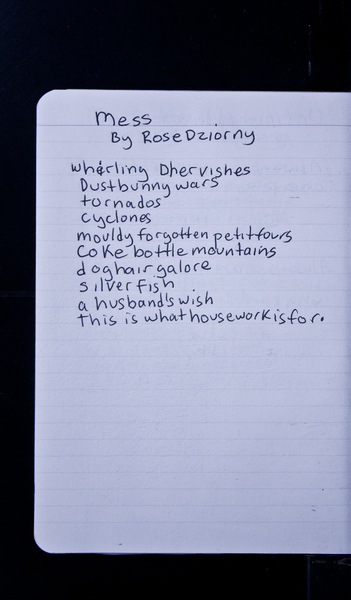 Mess
By Rose Dziorny
wherling Dhervishes
Dustbunny wars
tornados
cyclones
mouldy forgotten petitfours
Coke bottle mountains
doghair galore
silverfish
a husband's wish
This is what housework is for.